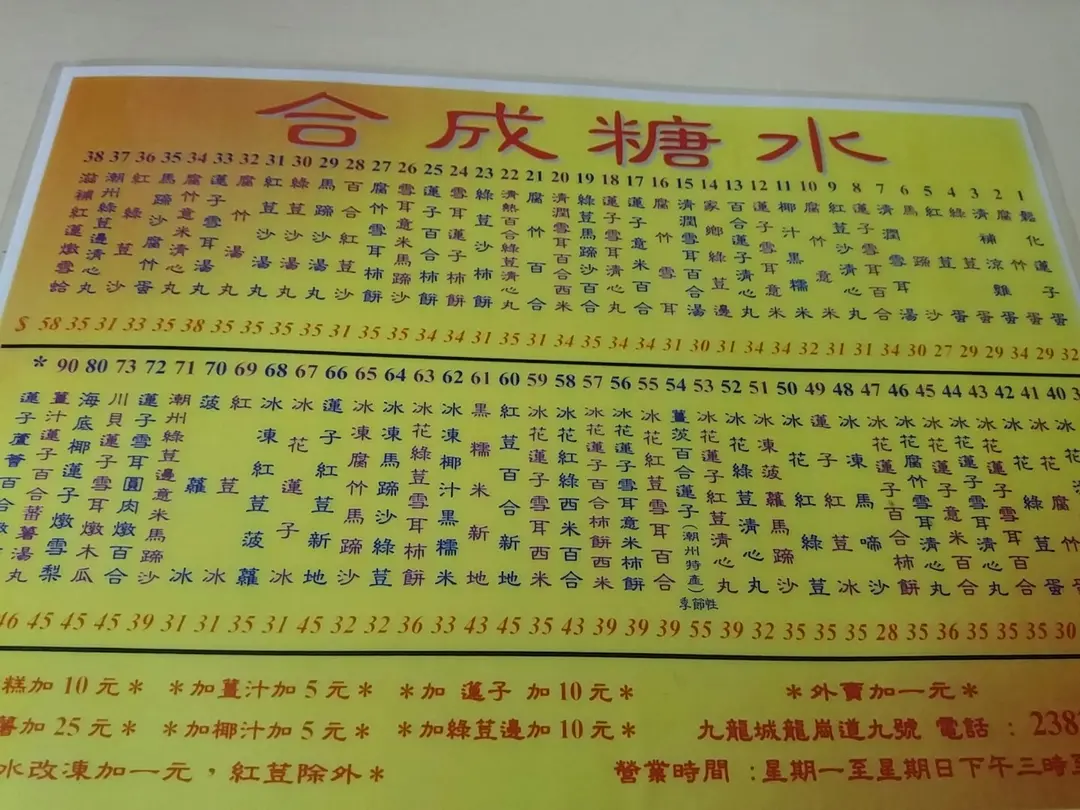 合成糖水
38 37 36 35 34 33 32 31 30 29 28 27 26 25 24 23 22 21 20 19 18 17 16 15 14 13 12 11 10 9 8 7 6 5 4 3 2 1
鬆化蓮子蛋
腐竹蛋
清補涼雞蛋
綠荳蛋
紅荳蛋
馬蹄沙
清潤雪耳湯
蓮子雪耳百合
紅荳沙清心丸
腐竹意米
椰汁黑糯米
蓮子雪耳意米
百合蓮子清心丸
家鄉綠荳邊
腐竹雪耳
蓮子意米百合
蓮子雪耳清心丸
綠荳馬蹄沙百合
清潤雪耳百合西米
腐竹百合
清熱百合綠荳清心丸
綠荳沙柿餅
雪耳蓮子柿餅
蓮子百合柿餅
雪耳意米馬蹄沙
腐竹雪耳柿餅
百合紅荳沙
馬蹄沙湯丸
綠荳沙湯丸
紅荳沙湯丸
腐竹湯丸
蓮子雪耳湯丸
腐竹意米清心丸
馬蹄腐竹蛋
紅綠荳沙
潮州綠荳邊清心丸
滋補紅蓮燉雪蛤
$ 58 35 31 33 35 38 35 35 35 35 31 35 35 34 34 31 35 31 34 35 34 34 31 30 31 34 34 32 31 31 34 30 27 29 29 34 29 32
* 90 80 73 72 71 70 69 68 67 66 65 64 63 62 61 60 59 58 57 56 55 54 53 52 51 50 49 48 47 46 45 44 43 42 41 40
冰花腐竹蛋
冰花綠荳蛋
冰花蓮子雪耳百合
冰花蓮子雪耳清心丸
冰花蓮子意米百合
冰花腐竹雪耳清心丸
冰花蓮子百合柿餅
冰凍馬啼沙
蓮子紅荳冰
冰花紅綠荳
冰凍菠蘿馬蹄沙
冰花綠荳清心丸
冰花蓮子紅荳清心丸
薑茨百合蓮子(潮州特產)季節性
冰花紅荳雪耳百合
冰花蓮子雪耳意米柿餅
冰花蓮子百合柿餅西米
冰花紅綠西米百合
冰花蓮子雪耳西米
紅荳百合新地
黑糯米新地
冰凍椰汁黑糯米
冰花綠荳雪耳柿餅
冰凍馬蹄沙綠荳
冰凍腐竹馬蹄沙
蓮子紅荳新地
冰花蓮子冰
冰凍紅荳菠蘿
紅荳冰
菠蘿冰
潮州綠荳邊意米馬蹄沙
蓮子雪耳圓肉燉百合
川貝蓮子雪耳燉木瓜
海底椰蓮子燉雪梨
薑汁蓮子百合蕃薯湯丸
46 45 45 45 39 31 31 35 31 45 32 32 36 33 43 45 35 43 39 39 39 55 39 32 35 35 35 28 35 36 35 35 35 30
糕加10元* *加薑汁加5元* *加 蓮子 加10元* *外賣加一元*
薯加25元* *加椰汁加5元* *加綠荳邊加10元* 九龍城龍崗道九號 電話:238
水改凍加一元,紅荳除外* 營業時間:星期一至星期日下午三時至